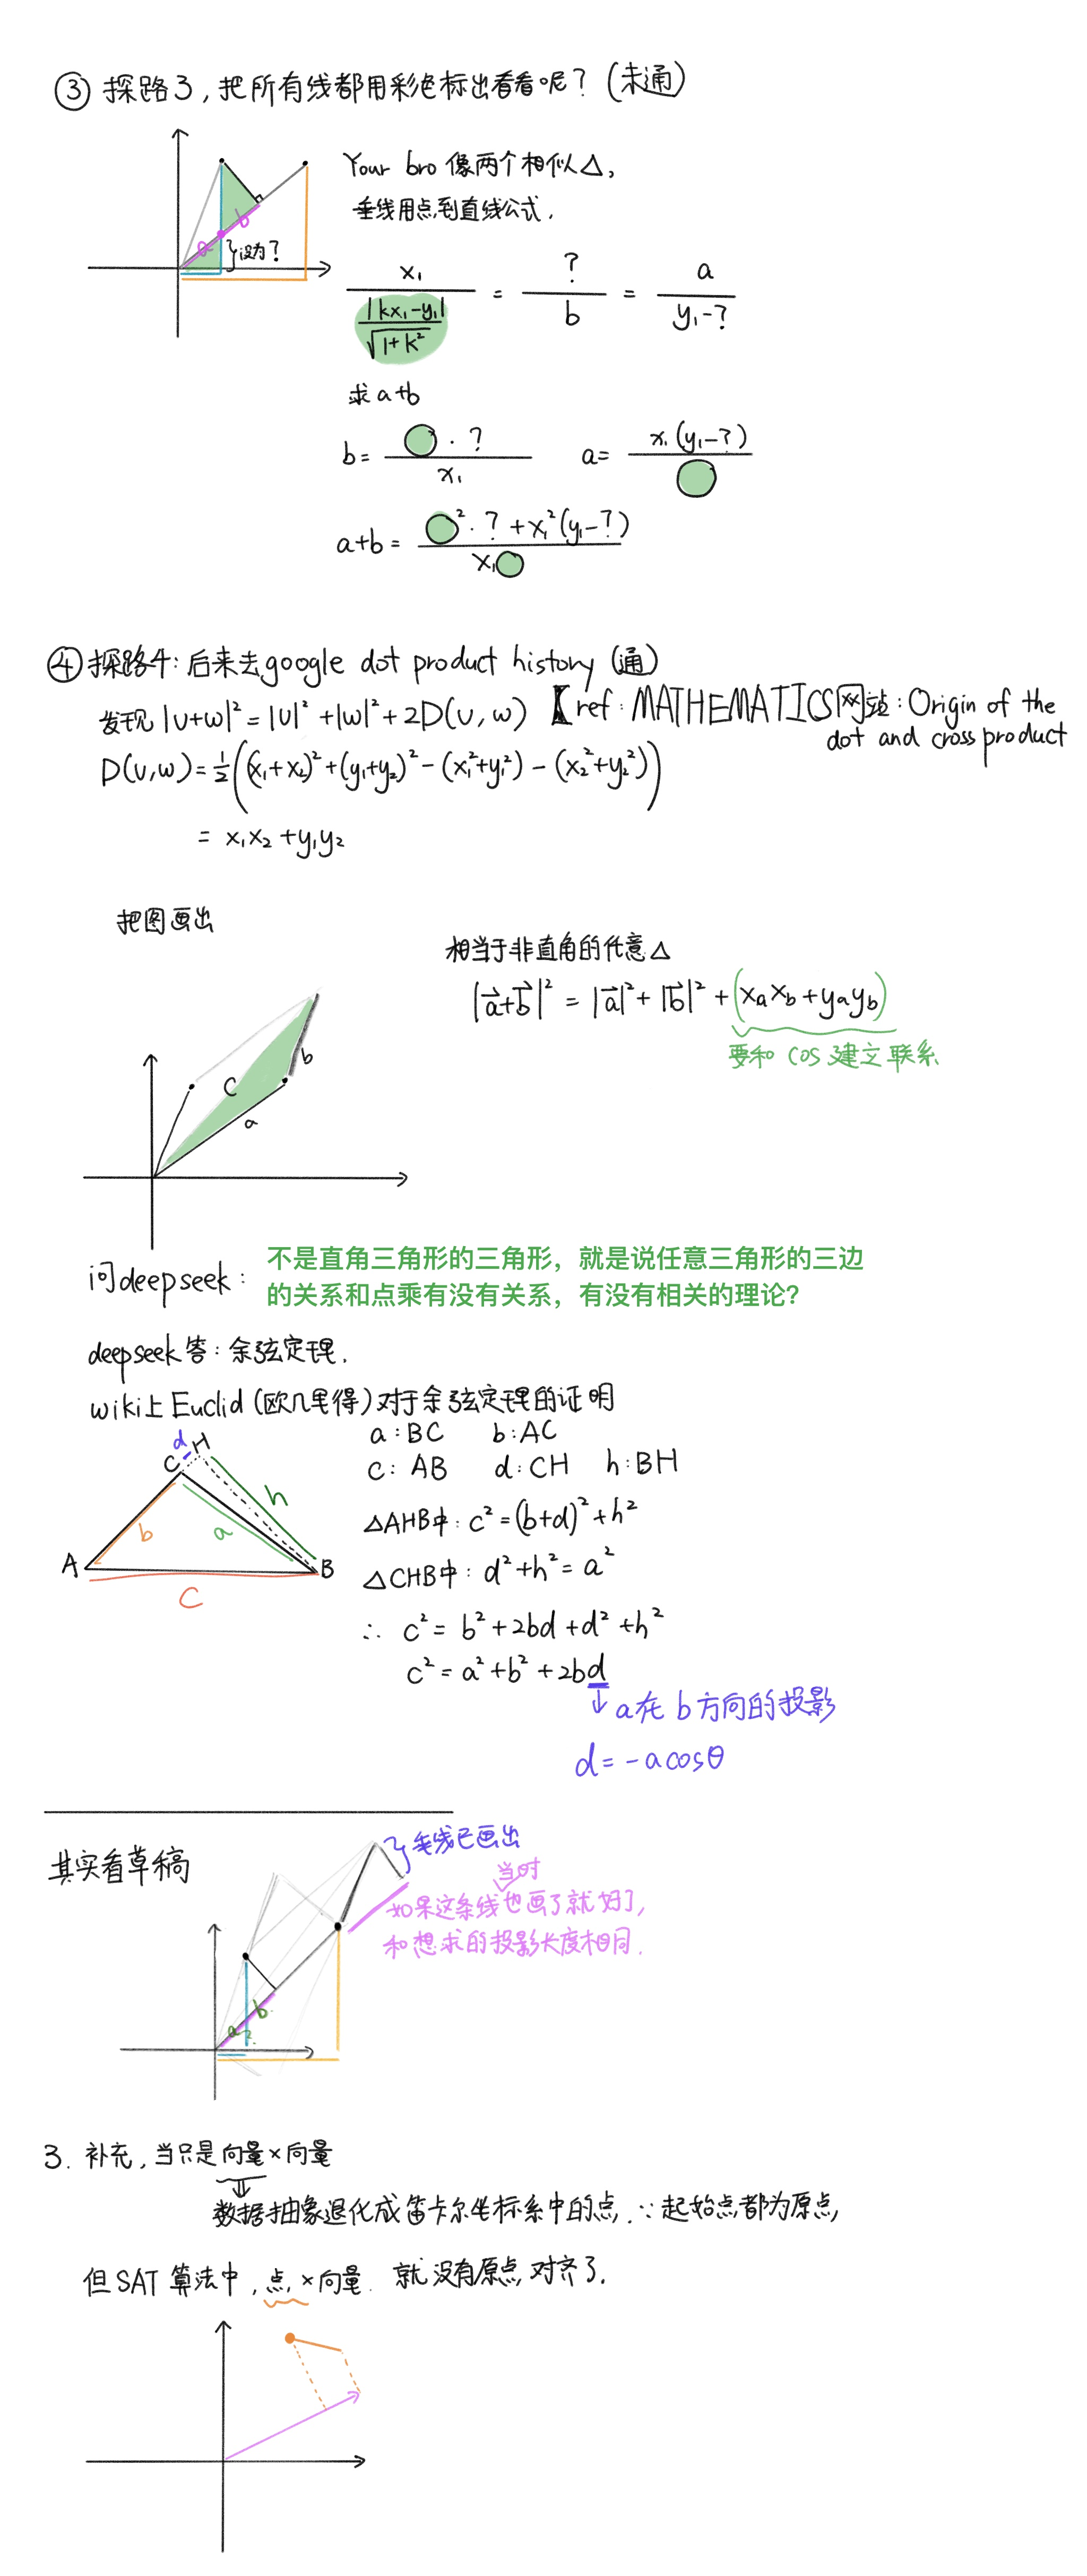 ③ 探路3，把所有线都用彩色标出看看呢？（未通）
Your bro 像两个相似△，
垂线用点到直线公式．
b
a
}设为？
x₁ / (|kx₁-y₁| / √(1+k²)) = ? / b = a / (y₁-?)
求 a+b
b= (○ · ?) / x₁　a= x₁(y₁-?) / ○
a+b = (○² · ? + x₁²(y₁-?)) / x₁○
④ 探路4: 后来去google dot product history（通）
发现 |v+w|² = |v|² + |w|² + 2D(v,w) 【ref: MATHEMATICS网站: Origin of the
dot and cross product
D(v,w) = ½((x₁+x₂)² + (y₁+y₂)² - (x₁²+y₁²) - (x₂²+y₂²))
= x₁x₂ + y₁y₂
把图画出
相当于非直角的任意△
|a⃗+b⃗|² = |a⃗|² + |b⃗|² + (xₐx_b + yₐy_b)
要和 cos 建立联系
b
C
a
问deepseek:
不是直角三角形的三角形，就是说任意三角形的三边
的关系和点乘有没有关系，有没有相关的理论？
deepseek 答: 余弦定理．
wiki上 Euclid (欧几里得) 对于余弦定理的证明
a: BC　b: AC
c: AB　d: CH　h: BH
d
H
C
h
b
a
A
B
C
△AHB中: c² = (b+d)² + h²
△CHB中: d² + h² = a²
∴ c² = b² + 2bd + d² + h²
c² = a² + b² + 2bd
↓ a在 b 方向的投影
d = -a cosθ
其实看草稿
}垂线已画出
当时
如果这条线也画了就好了，
和想求的投影长度相同．
b
a
?
3. 补充，当只是向量×向量
⇓
数据抽象退化成笛卡尔坐标系中的点．∵起始点都为原点，
但 SAT 算法中，点×向量．就没有原点对齐了．